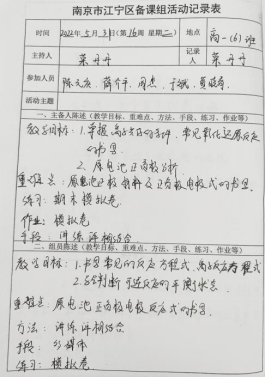 南京市江宁区备课组活动记录表
时间 2022年5月31日(第16周 星期二) 地点 高一(6)班
主持人 记录人
参加人员
活动主题
一、主备人陈述(教学目标、重难点、方法、手段、练习、作业等)
教学目标:1.掌握离子方程式,常见氧化还原反应的书写.
2.原电池正负极分析.
重难点:原电池正负极材料及正负极电极式的书写.
练习:期末模拟卷
作业:模拟卷
手段:讲练评相结合
二、组员陈述(教学目标、重难点、方法、手段、练习、作业等)
教学目标:1.书写常见的反应方程式,离子反应方程式
2.会判断可逆反应的平衡状态.
重难点:原电池正负极电极反应式的书写.
方法:讲练评相结合
手段:多媒体
练习:模拟卷